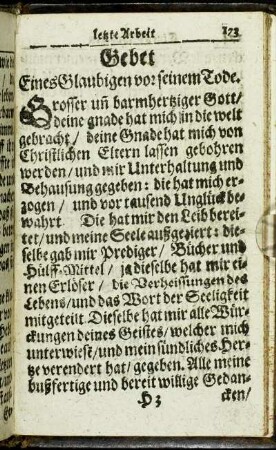 letzte Arbeit 173
Gebet
Eines Glaubigen vor seinem Tode.
Grosser uñ barmhertziger Gott/
deine gnade hat mich in die welt
gebracht/ deine Gnade hat mich von
Christlichen Eltern lassen gebohren
werden/ und mir Unterhaltung und
Behausung gegeben: die hat mich er-
zogen/ und vor tausend Unglück be-
wahrt. Die hat mir den Leib berei-
tet/ und meine Seele außgeziert: die-
selbe gab mir Prediger/ Bücher und
Hülff-Mittel/ ja dieselbe hat mir ei-
nen Erlöser/ die Verheissungen des
Lebens/ und das Wort der Seeligkeit
mitgeteilt Dieselbe hat mir alle Wür-
ckungen deines Geistes/ welcher mich
unterwiest/ und mein sündliches Her-
tze verendert hat/ gegeben. Alle meine
bußfertige und bereit willige Gedan-
H 3 cken/